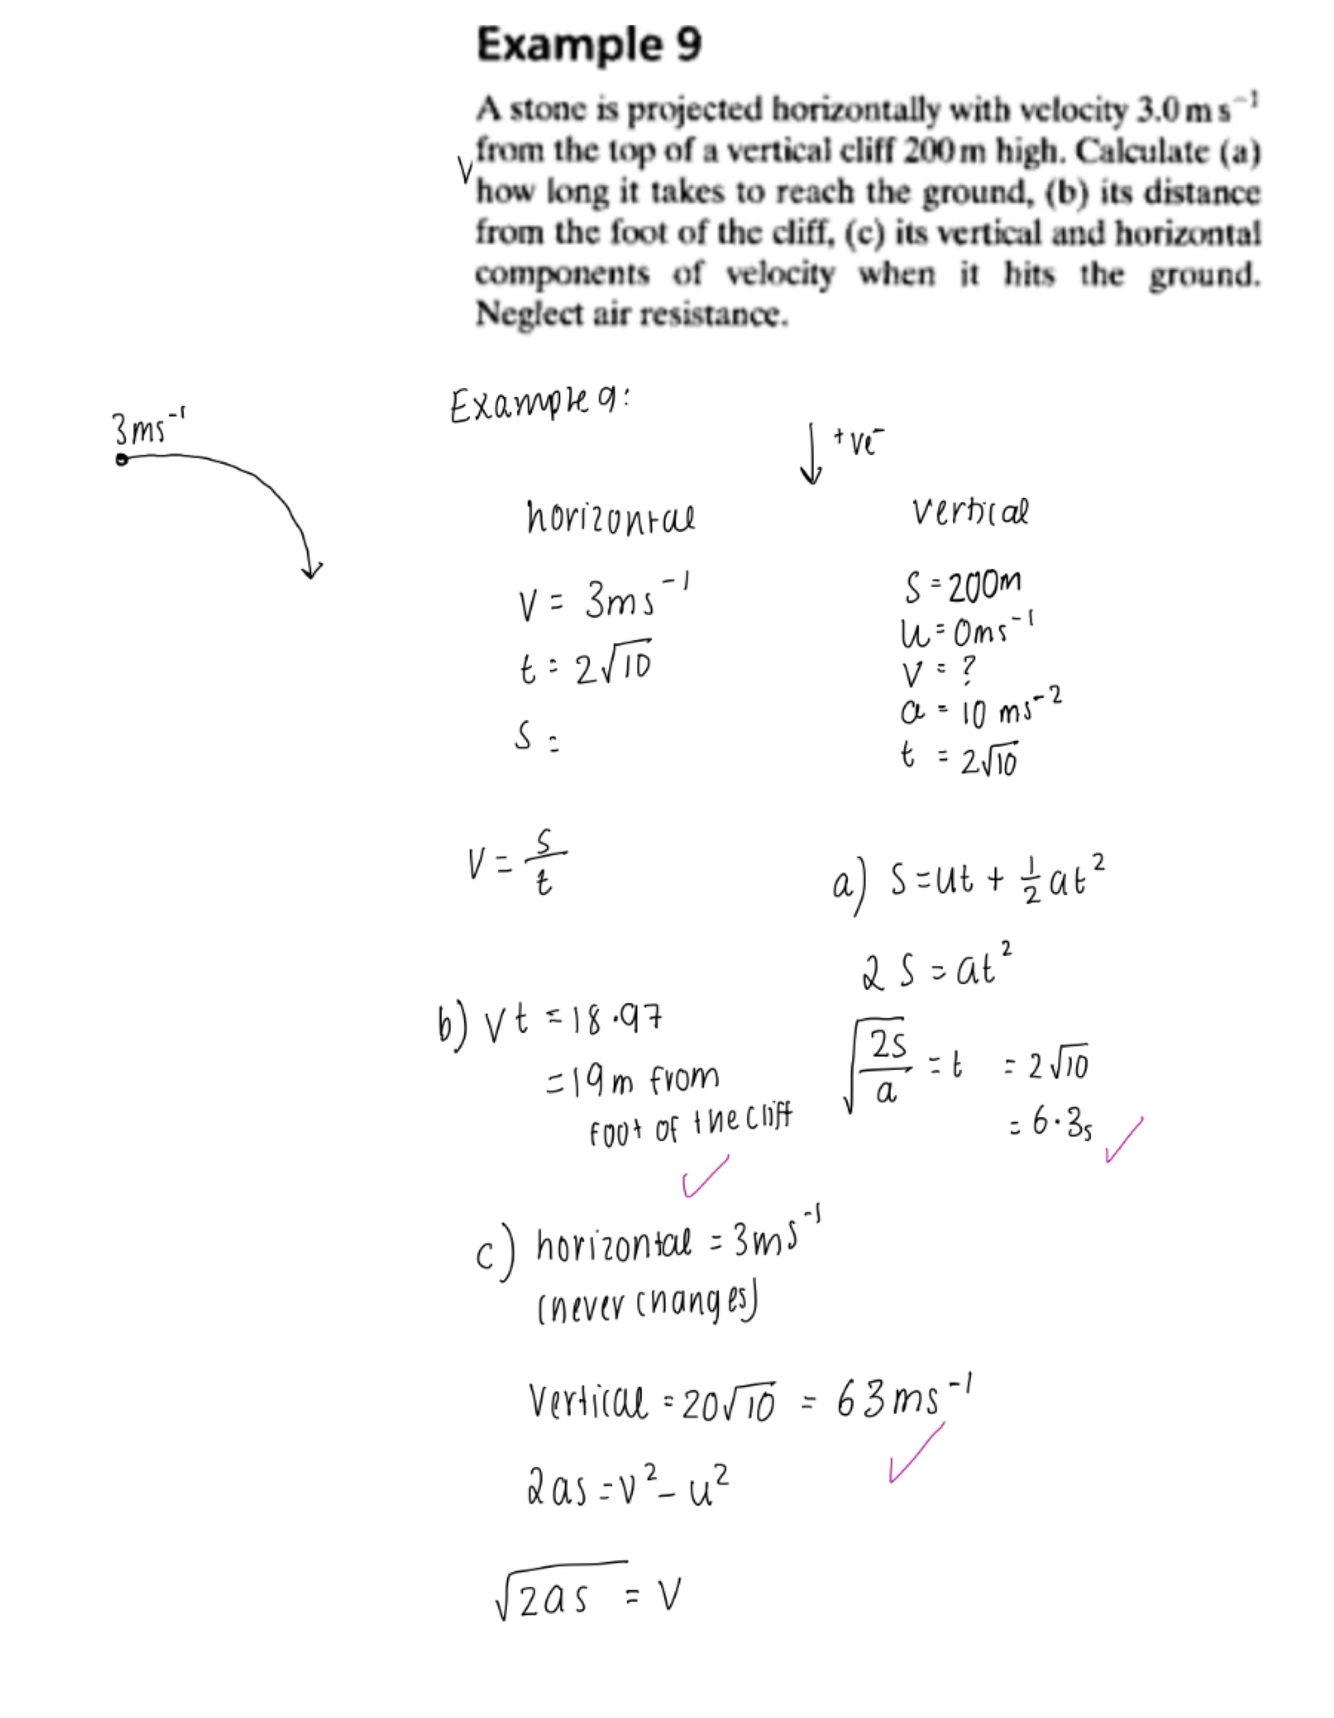 Example 9
A stone is projected horizontally with velocity 3.0 m s⁻¹
from the top of a vertical cliff 200 m high. Calculate (a)
how long it takes to reach the ground, (b) its distance
from the foot of the cliff, (c) its vertical and horizontal
components of velocity when it hits the ground.
Neglect air resistance.
V
Example 9:
3ms⁻¹
↓ +ve
horizontal
V = 3ms⁻¹
t = 2√10
S =
V = s/t
vertical
S = 200m
u = 0ms⁻¹
V = ?
a = 10 ms⁻²
t = 2√10
a) S = ut + ½at²
2S = at²
√(2S/a) = t = 2√10
= 6.3s ✓
b) Vt = 18.97
= 19m from
foot of the cliff ✓
c) horizontal = 3ms⁻¹
(never changes)
Vertical = 20√10 = 63ms⁻¹ ✓
2as = v² - u²
√2as = V